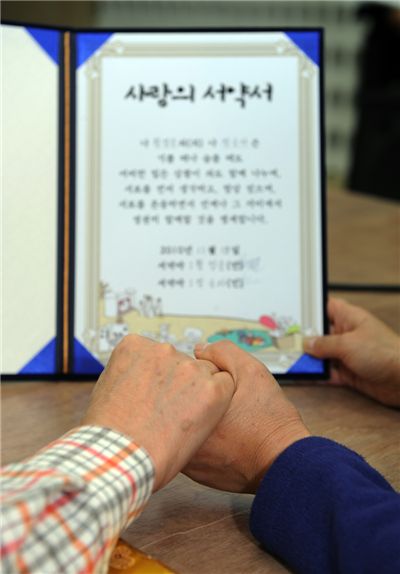 사랑의 서약서
나 와(과) 나 은
기쁠 때나 슬플 때도
어떠한 힘든 상황이 와도 함께 나누며,
서로를 먼저 생각하고, 항상 믿으며,
서로를 존중하면서 언제나 그 자리에서
영원히 함께할 것을 맹세합니다.
서약자 : (인)
서약자 : (인)